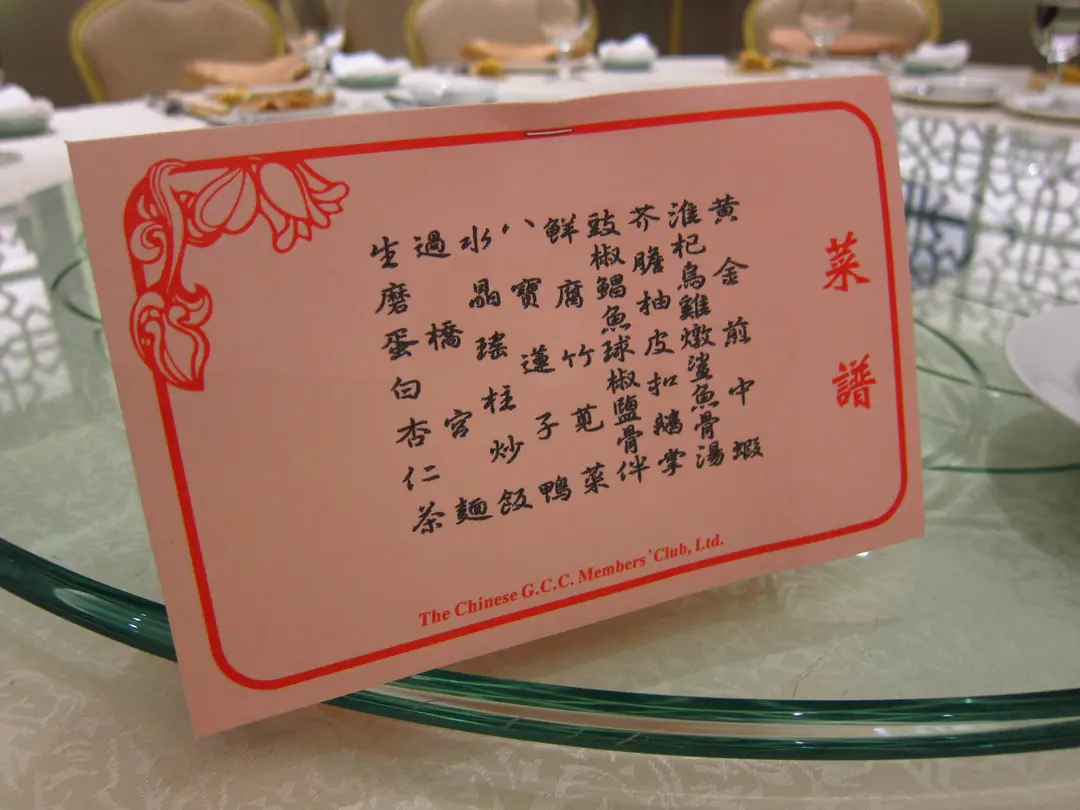 菜譜
黃金煎中蝦
淮杞烏雞燉鯊魚骨湯
芥膽柚皮扣鵝掌
豉椒鯧魚球椒鹽骨伴
鮮腐竹莧菜
八寶蓮子鴨
水晶瑤柱炒飯
過橋宮麵
生磨蛋白杏仁茶
The Chinese G.C.C. Members' Club, Ltd.